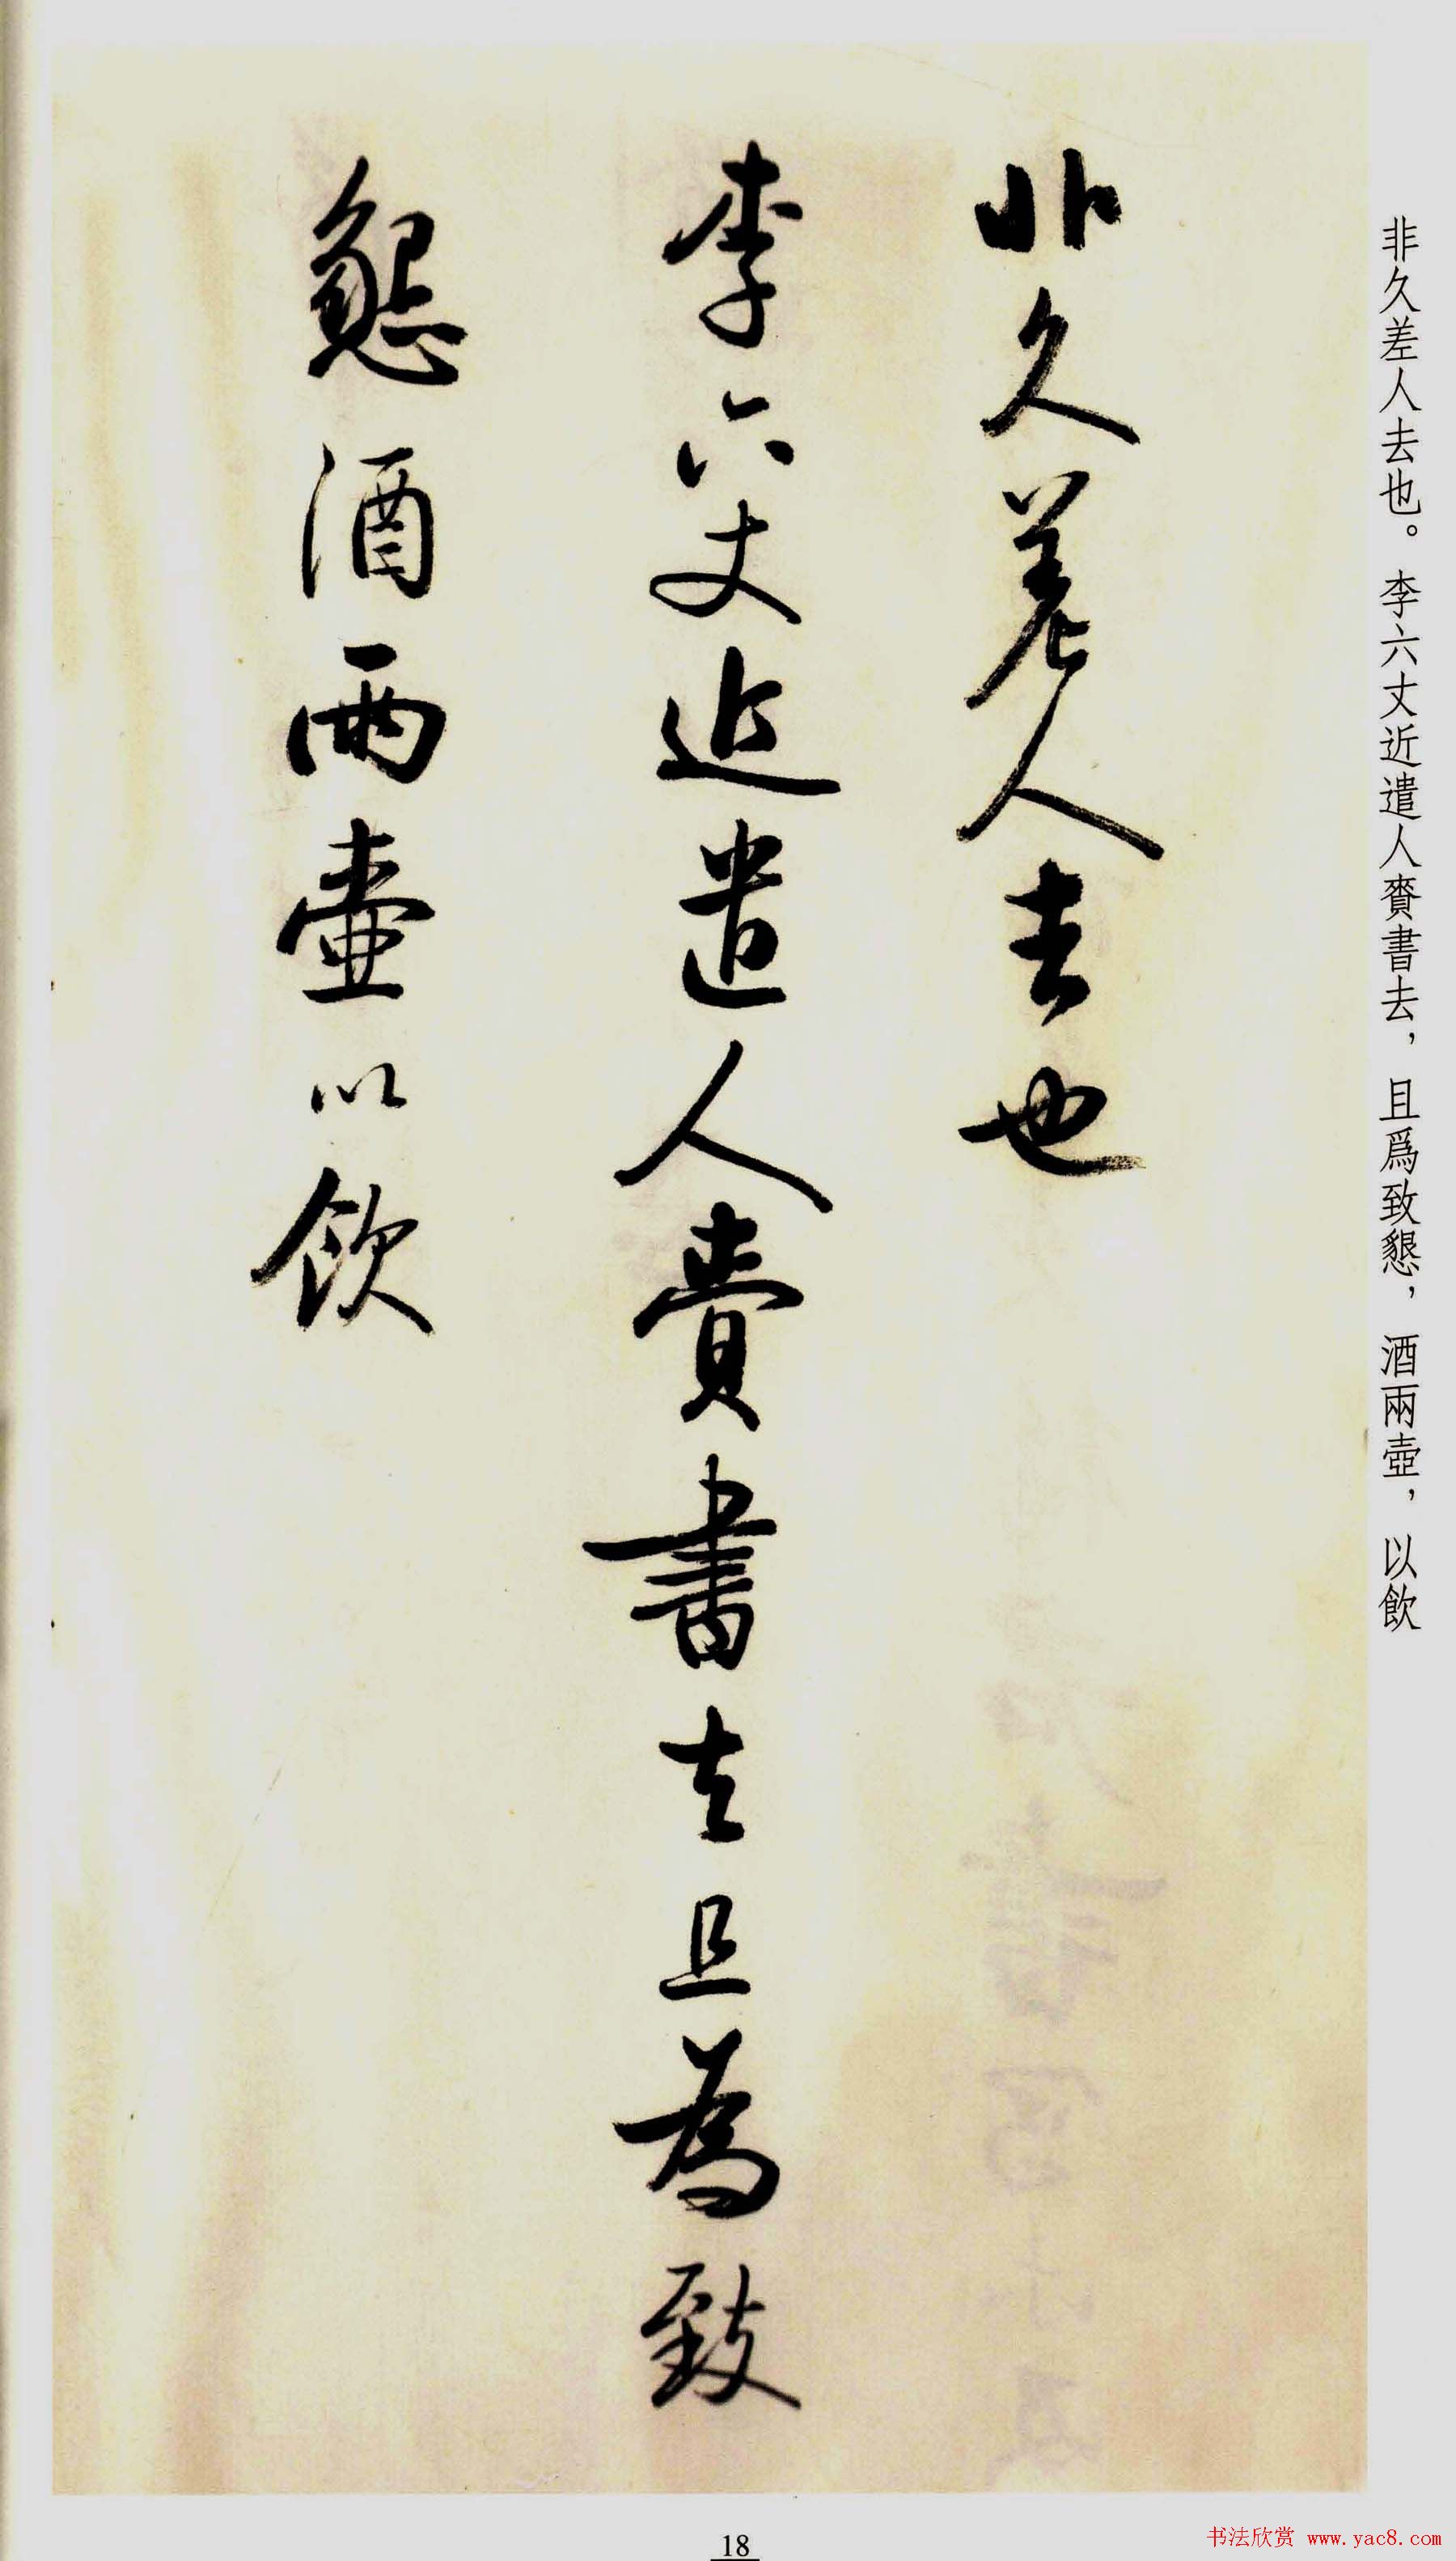 非久差人去也。李六丈近遣人賷書去，且爲致懇，酒兩壺，以飲
非久差人去也
李六丈近遣人賷書去且為致
懇酒兩壺以飲
18
书法欣赏 www.yac8.com